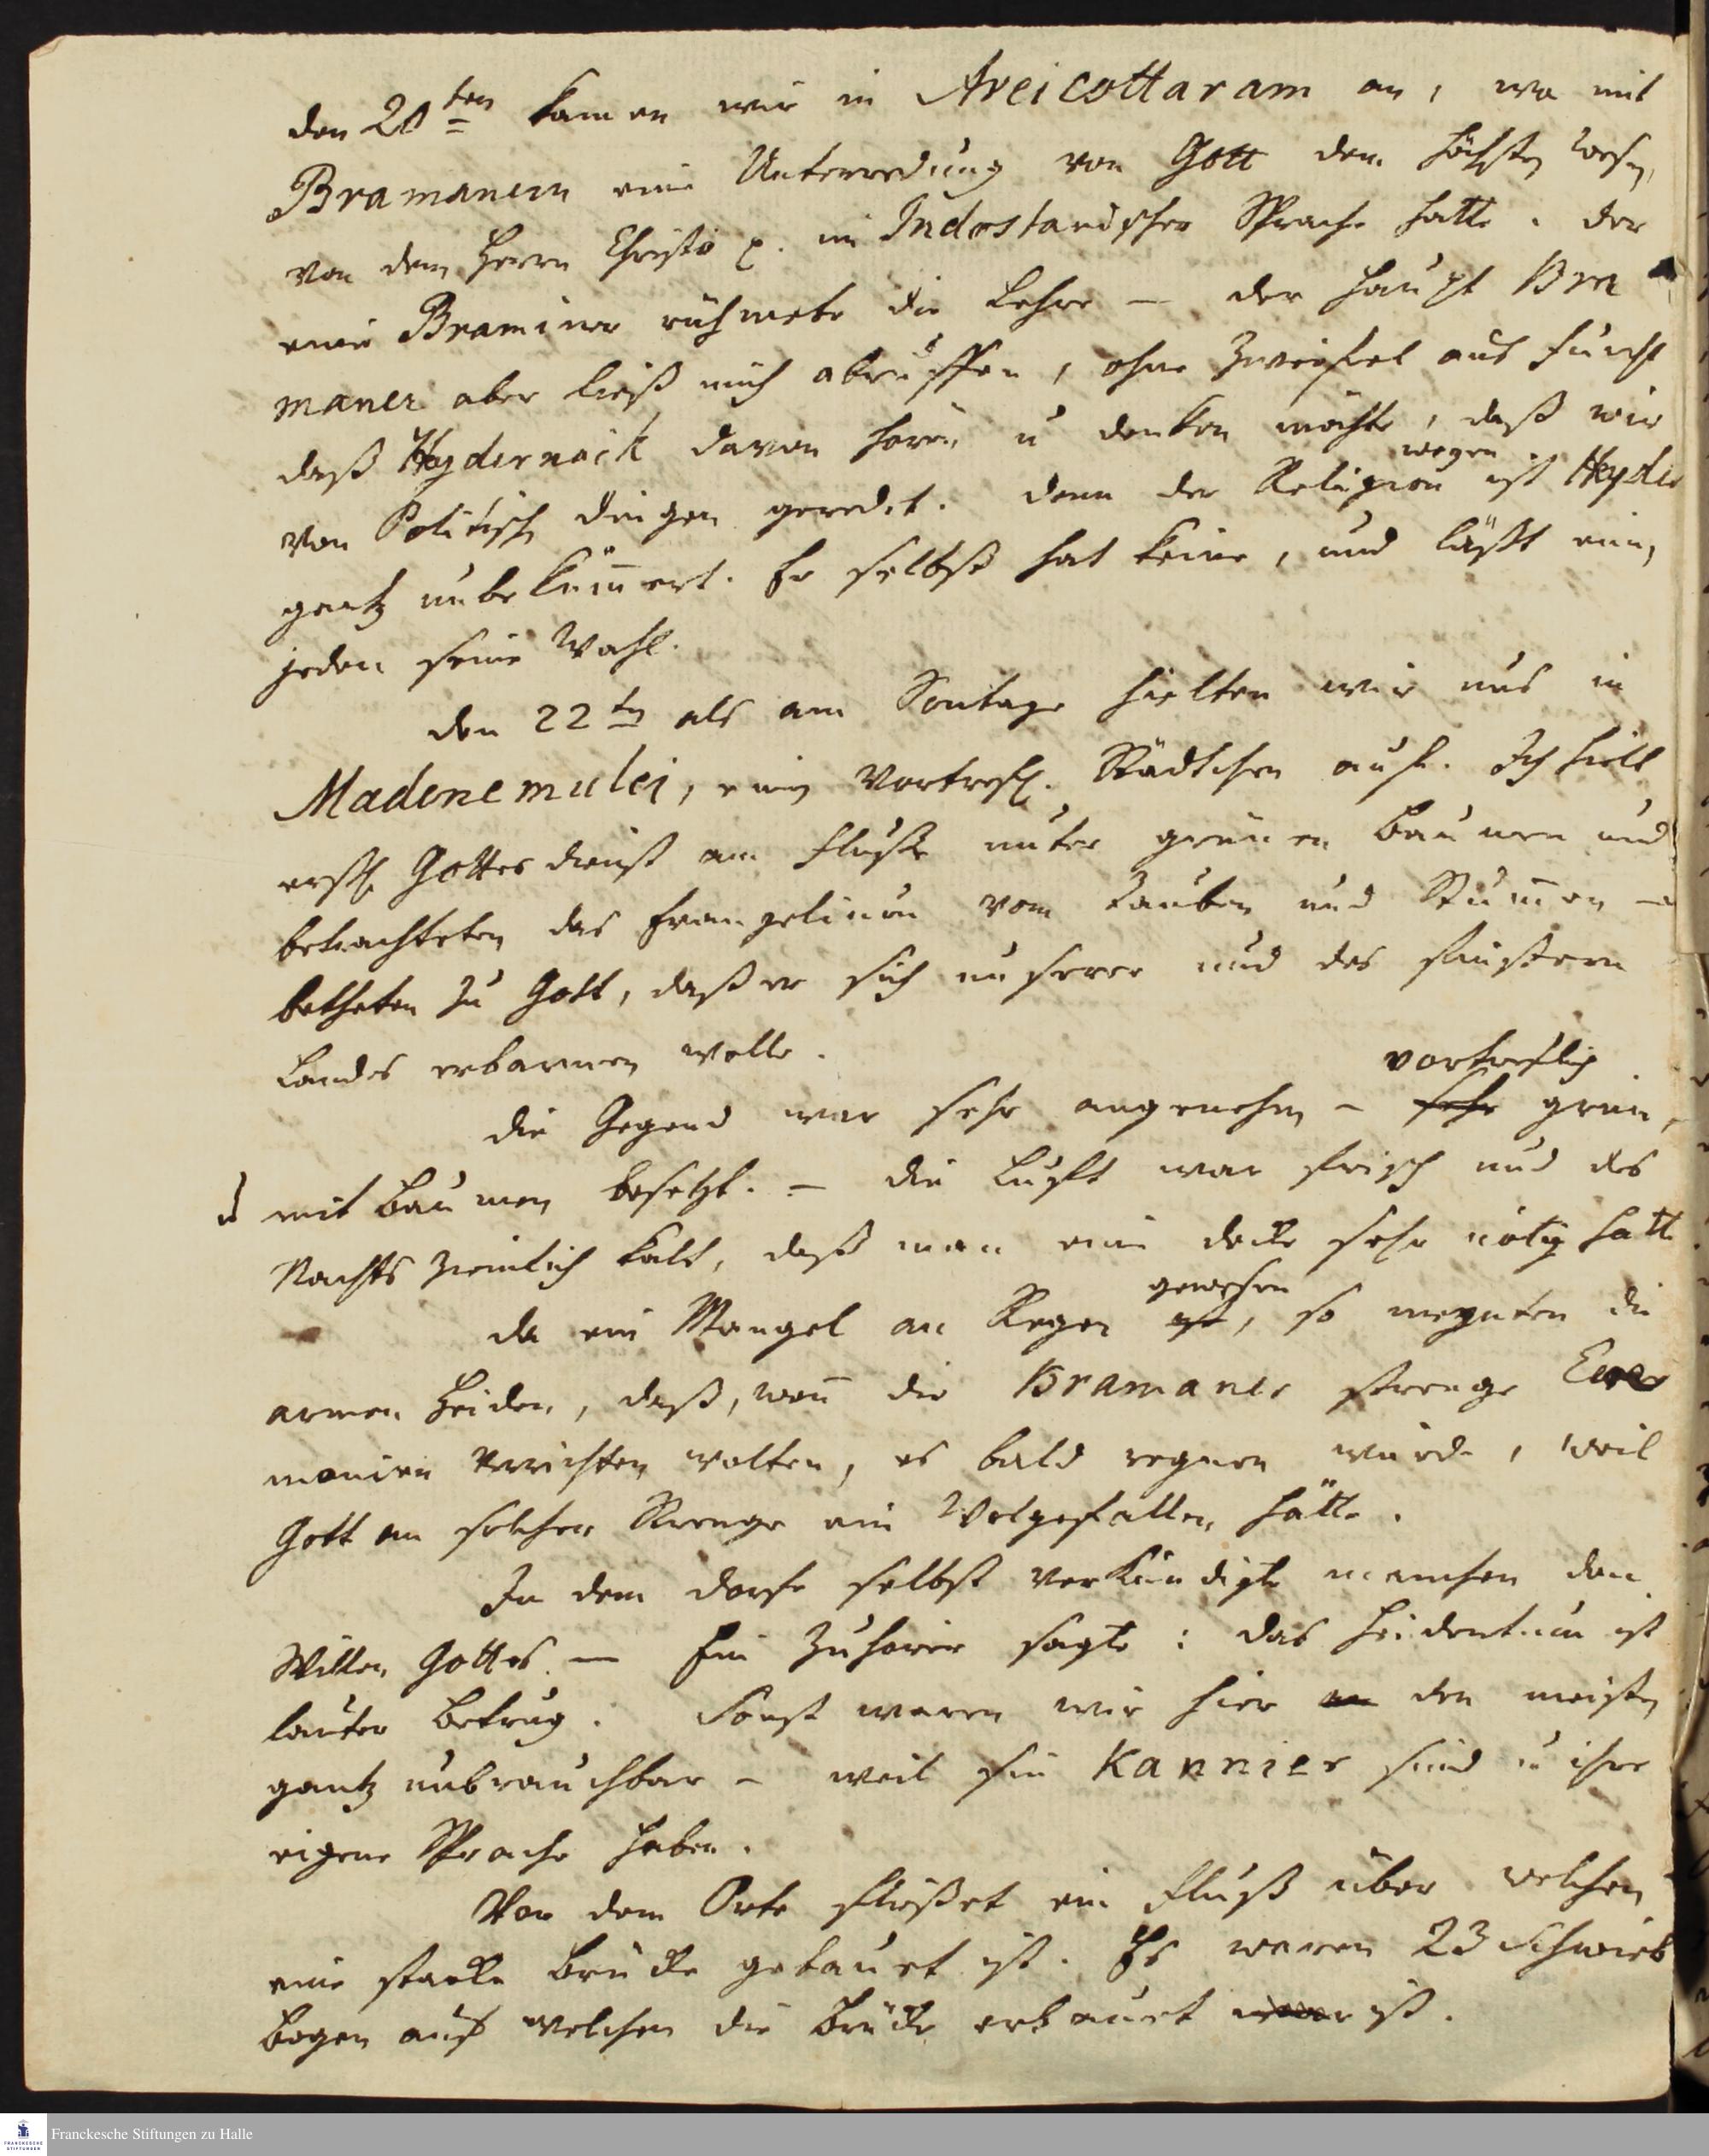 den 20ten kamen wir in Areicottaram an, wo mit
Bramanern eine Unterredung von Gott dem höchsten Wesen,
von dem Herrn Christo p. in Indostanischer Sprache hatte. der
eine Braminer rühmete die Lehre — der Haupt Bra
maner aber ließ mich abruffen, ohne Zweifel aus Furcht
daß Hydernaik davon hören u denken möchte, daß wir
von Politisch dingen geredet. denn der Religion wegen ist Hyder
gantz unbekümert. Er selbst hat keine, und läßt ein
jeden seine Wahl.
den 22ten als am Sontage hielten wir uns in
Madenemulei, ein vortrefl. Städtchen auf. Ich hielt
erstl Gottesdienst am Fluße unter grünen Baumen und
betrachteten das Evangelium vom Tauben und Stumen —
betheten zu Gott, daß er sich unserer und des finstern
Landes erbarmen wolle.
die Gegend war sehr angenehm – sehr vortreflich grün,
u mit Baumen besetzt. — die Luft war frisch und des
Nachts ziemlich kalt, daß man eine decke sehr nötig hatte
da ein Mangel an Regen ist gewesen, so meynten die
armen Heiden, daß, wen die Bramaner strenge Cere
monien verrichten wolten, es bald regnen würde, weil
Gott an solcher Strenge ein Wolgefallen hätte.
In dem dorfe selbst verkündigte manchen den
Willen Gottes. — Ein Zuhörer sagte: das Heidentum ist
lauter Betrug. Sonst waren wir hier den meisten
gantz unbrauchbar – weil sie Kannier sind u ihre
eigene Sprache haben.
Vor dem Orte fließet ein Fluß über welchen
eine starke Brücke gebauet ist. Es waren 23 Schwieb
bogen auf welchen die Brücke erbauet ist.
Franckesche Stiftungen zu Halle
FRANCKESCHE
STIFTUNGEN